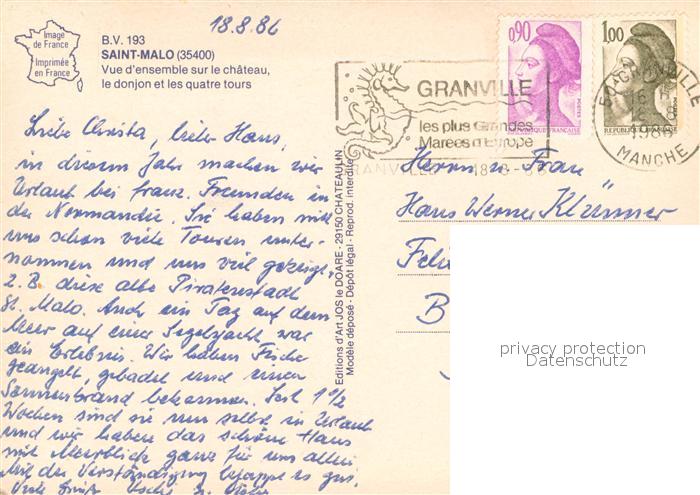 18.8.86
Image
de France
Imprimée
en France
B.V. 193
SAINT-MALO (35400)
Vue d'ensemble sur le château,
le donjon et les quatre tours
0,90
POSTES
REPUBLIQUE FRANÇAISE
1,00
REPUBLIQUE FRANÇAISE
GRANVILLE
les plus Grandes
Marées d'Europe
GRANVILLE
50 GRANVILLE
1986
MANCHE
Liebe Christa, lieber Hans,
in diesem Jahr machen wir
Urlaub bei franz. Freunden in
der Normandie. Sie haben mit
uns schon viele Touren unter-
nommen und uns viel gezeigt,
z.B. diese alte Piratenstadt
St. Malo. Auch ein Tag auf dem
Meer auf einer Segelyacht war
ein Erlebnis. Wir haben Fische
geangelt, gebadet und einen
Sonnenbrand bekommen. Seit 1 1/2
Wochen sind sie nun selbst in Urlaub
und wir haben das schöne Haus
mit Meerblick ganz für uns allein
Mit der Verständigung klappt es gut.
Viele Grüße
Editions d'Art JOS le DOARE - 29150 CHATEAULIN
Modèle déposé - Dépôt légal - Reprod. interdite
Herrn u. Frau
Hans Werner Klümner
B
privacy protection
Datenschutz